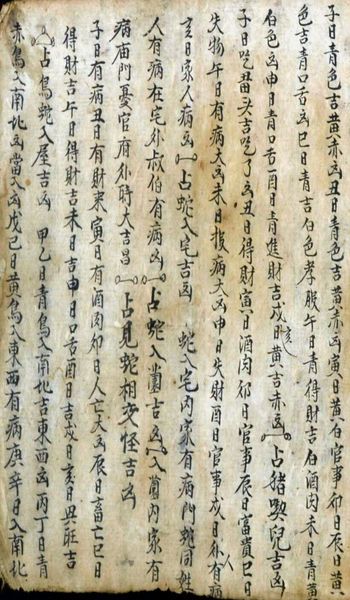 子日青色吉黄赤凶丑日青色吉黄赤凶寅日黄白官事卯日辰日黄
色吉青口舌凶巳日青吉白色孝服午日青得財吉白酒肉未日青黄
白色凶申日青口舌酉日青進財吉戌日亥黄吉赤凶 占猪喫兒吉凶
子日吃头吉吃了凶丑日得財寅日酒肉卯日官事辰日富貴巳日
失物午日有病大凶未日損病大凶申日失財酉日官事戌日外人有病
亥日家人病凶 占蛇入宅吉凶 蛇入宅内家有病門親同姓
人有病在宅外叔伯有病凶 占蛇入吉凶 入内家有
病門憂官府外時大吉昌 占見蛇相交怪吉凶
子日有病丑日有財来寅日有酒肉卯日人亡大凶辰日畜亡巳日
得財吉午日得財吉未日吉申日口舌酉日吉戌日亥日興旺吉
占鳥蛇入屋吉凶 甲乙日青鳥入南北吉東西凶丙丁日青
赤鳥入南北凶當入凶戊己日黄鳥入東西有病庚辛日入南北